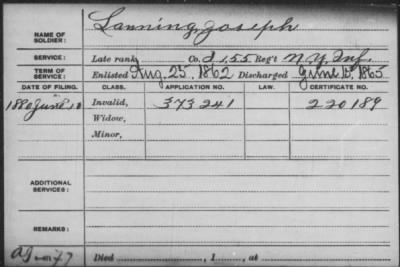 Lanning, Joseph
NAME OF
SOLDIER:
SERVICE: Late rank, Co. I, 155 Reg't N.Y. Inf.
TERM OF
SERVICE: Enlisted Aug. 25, 1862 Discharged June 15, 1865
DATE OF FILING. CLASS. APPLICATION NO. LAW. CERTIFICATE NO.
1880 June 10 Invalid, 373241 220189
Widow,
Minor,
ADDITIONAL
SERVICES:
REMARKS:
Died , 1 , at